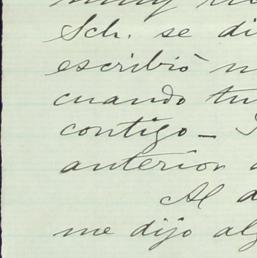 muy
Sch. se di
escribió
cuando tu
contigo —
anterior
Al d
me dijo alg